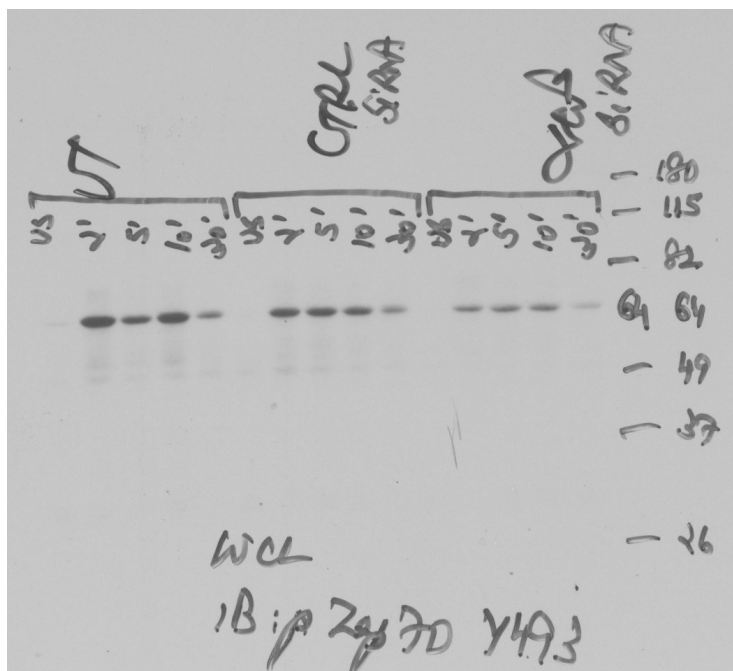 UT
CTRL
siRNA
siRNA
US 2' 5' 10' 30' US 2' 5' 10' 30' US 2' 5' 10' 30'
180
115
82
64 64
49
37
26
WCL
IB: p Zap70 Y493